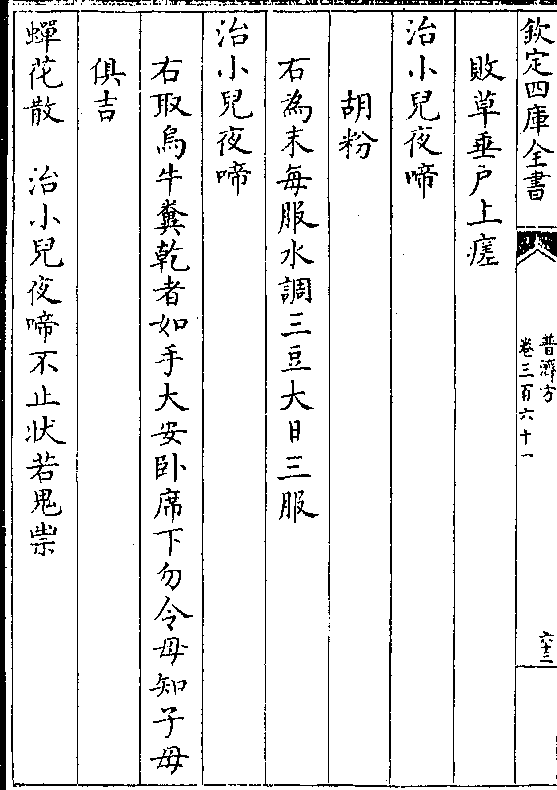 欽定四庫全書
普濟方
卷三百六十一
六十三
敗草垂户上瘥
治小兒夜啼
胡粉
右為末每服水調三豆大日三服
治小兒夜啼
右取烏牛糞乾者如手大安卧席下勿令母知子母
俱吉
蟬花散　治小兒夜啼不止状若鬼祟